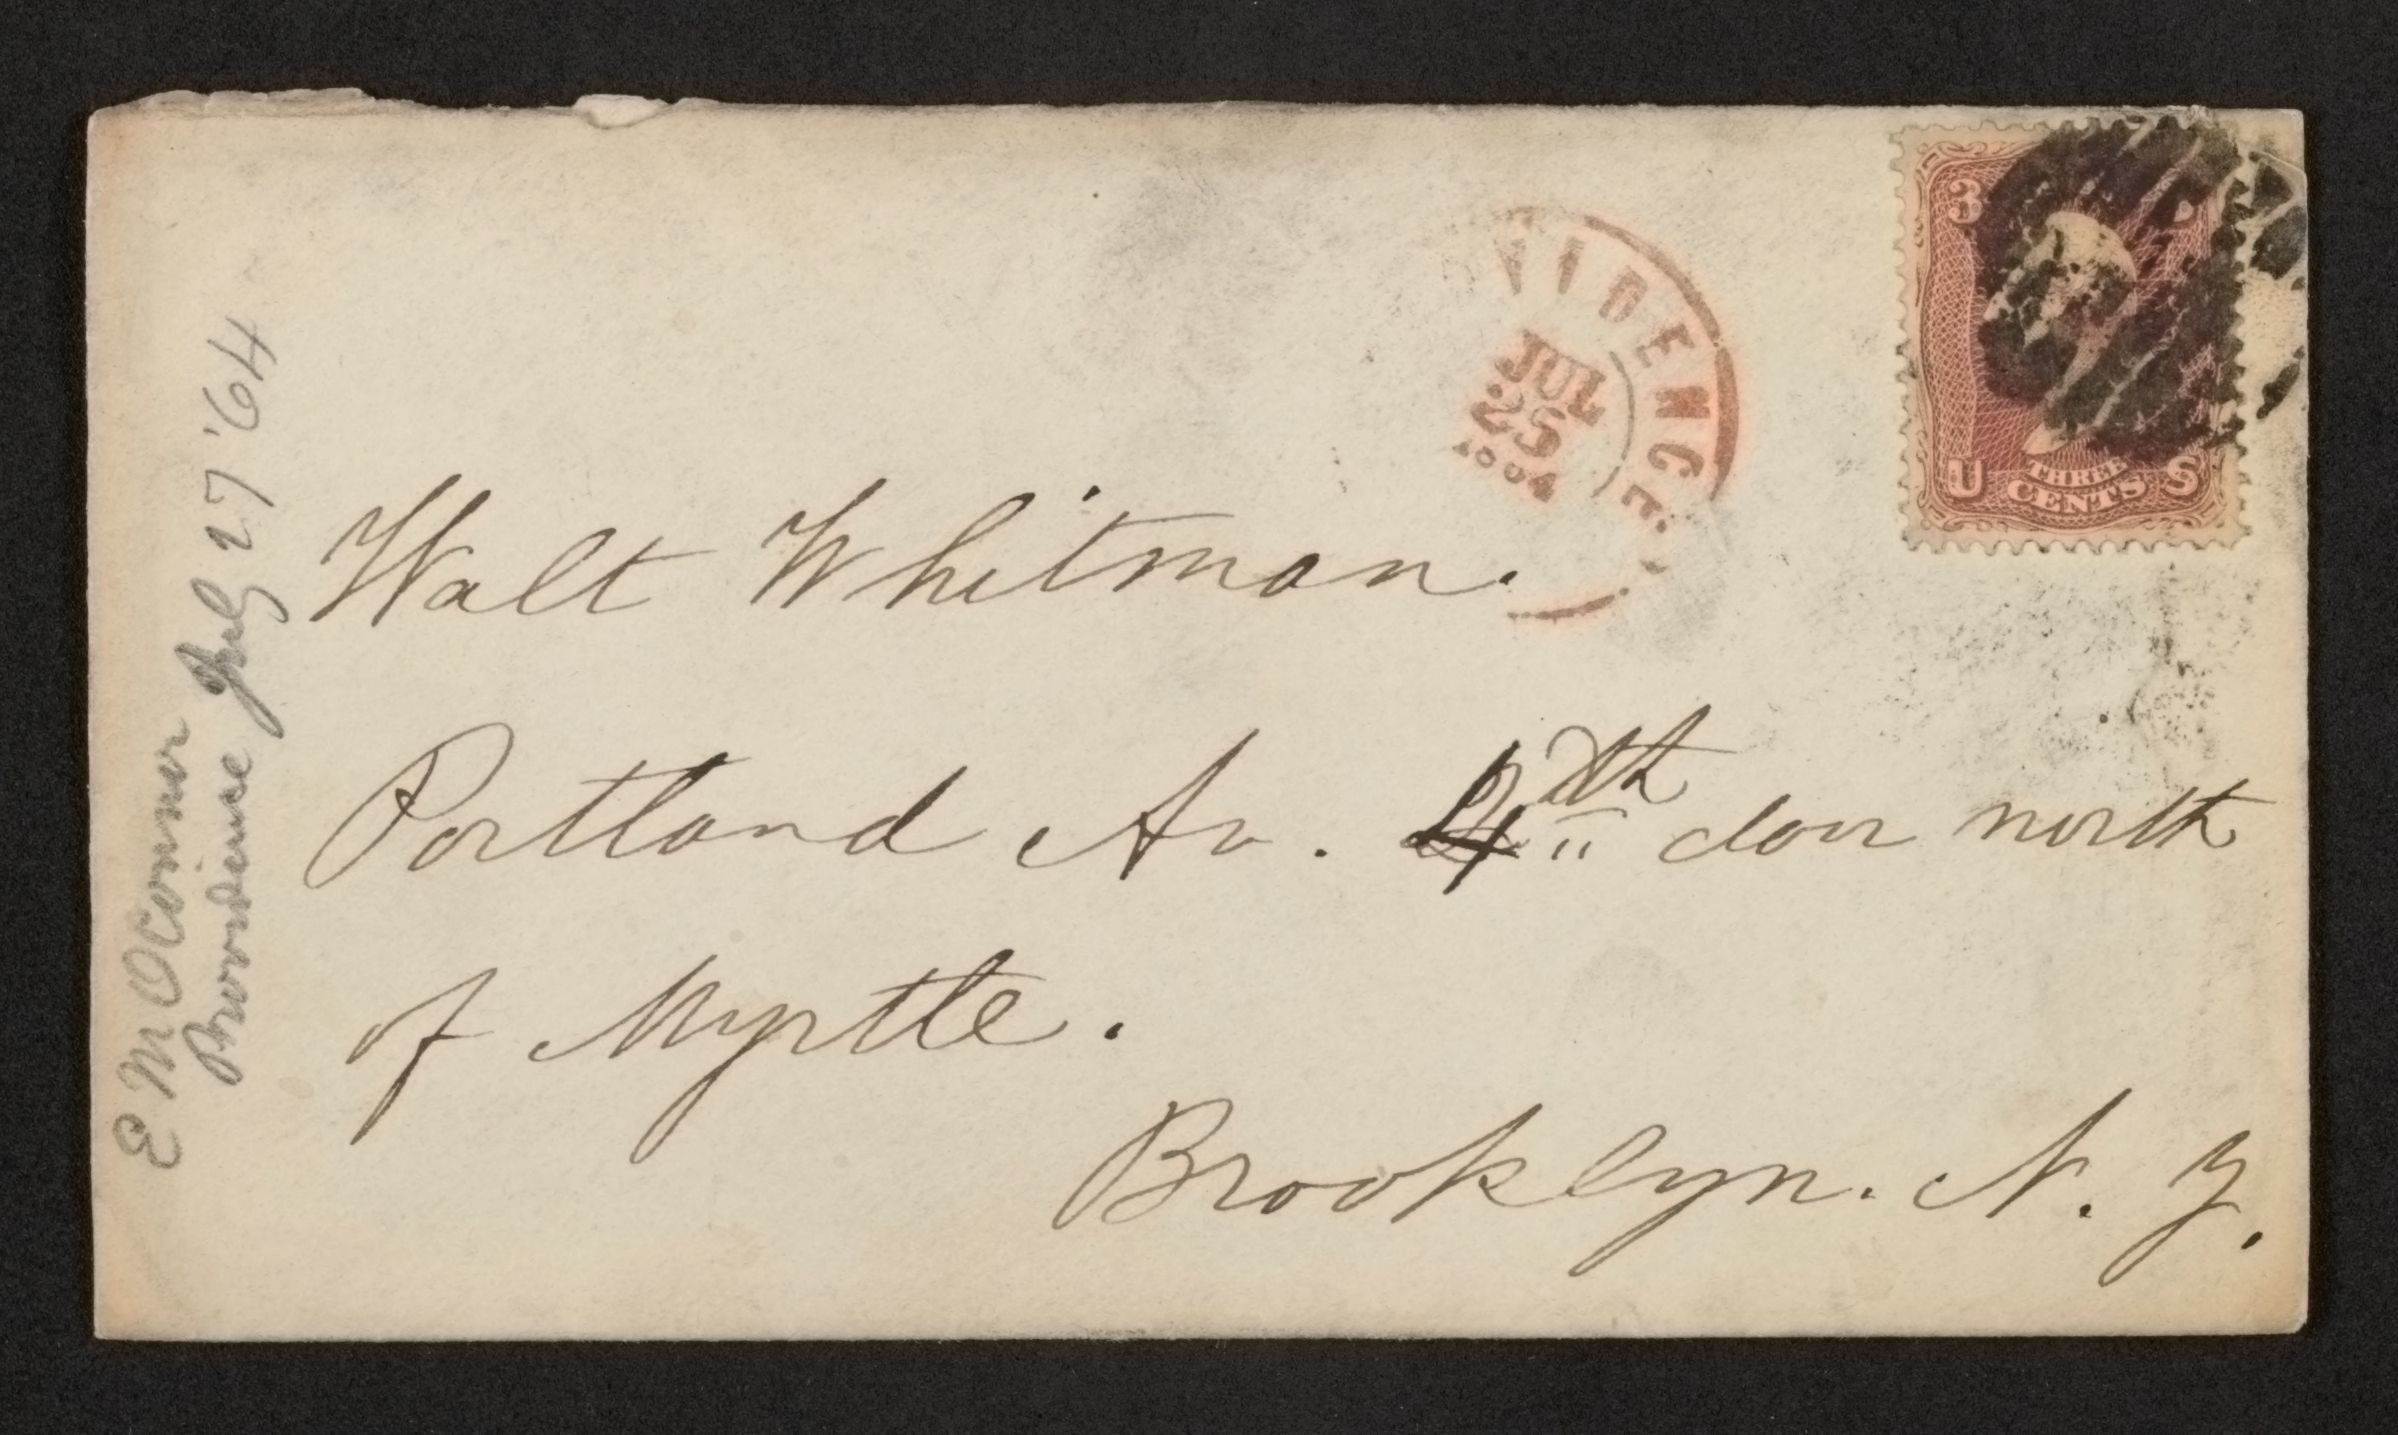 E M OConnor
Providence July 27 '64
VIDENCE
JUL
25
1864
3
U THREE S
CENTS
Walt Whitman.
Portland Av. 4th door north
of Myrtle.
Brooklyn. N. Y.